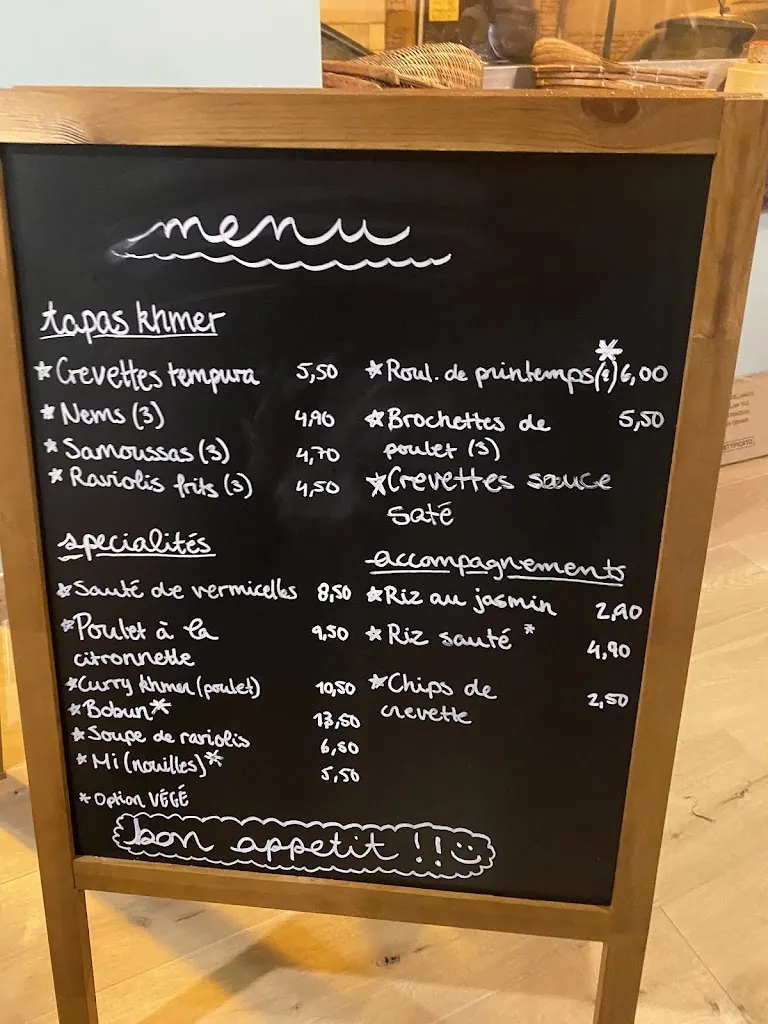 menu
tapas khmer
* Crevettes tempura 5,50
* Nems (3) 4,90
* Samoussas (3) 4,70
* Raviolis frits (3) 4,50
* Roul. de printemps * 6,00
* Brochettes de 5,50
poulet (3)
* Crevettes sauce
saté
specialités
* Sauté de vermicelles 8,50
* Poulet à la 9,50
citronnelle
* Curry khmer (poulet) 10,50
* Bobun * 13,50
* Soupe de raviolis 6,80
* Mi (nouilles) * 5,50
* Option VÉGÉ
accompagnements
* Riz au jasmin 2,90
* Riz sauté * 4,90
* Chips de 2,50
crevette
bon appetit !!